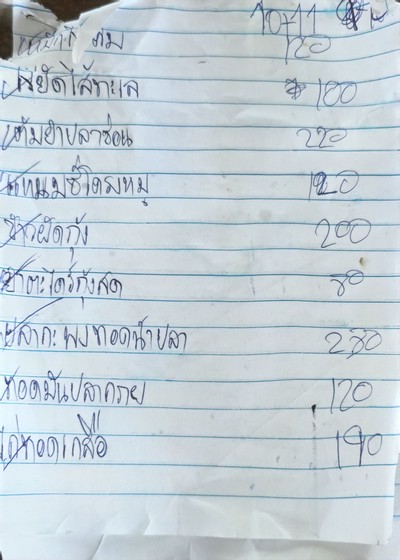 10-11
120
ผัดไส้ทะเล 100
ต้มยำปลาช่อน 220
แหนมซี่โครงหมู 120
ข้าวผัดกุ้ง 200
ยำตะไคร้กุ้งสด 80
ปลากะพงทอดน้ำปลา 280
ทอดมันปลากราย 120
ไก่ทอดเกลือ 190